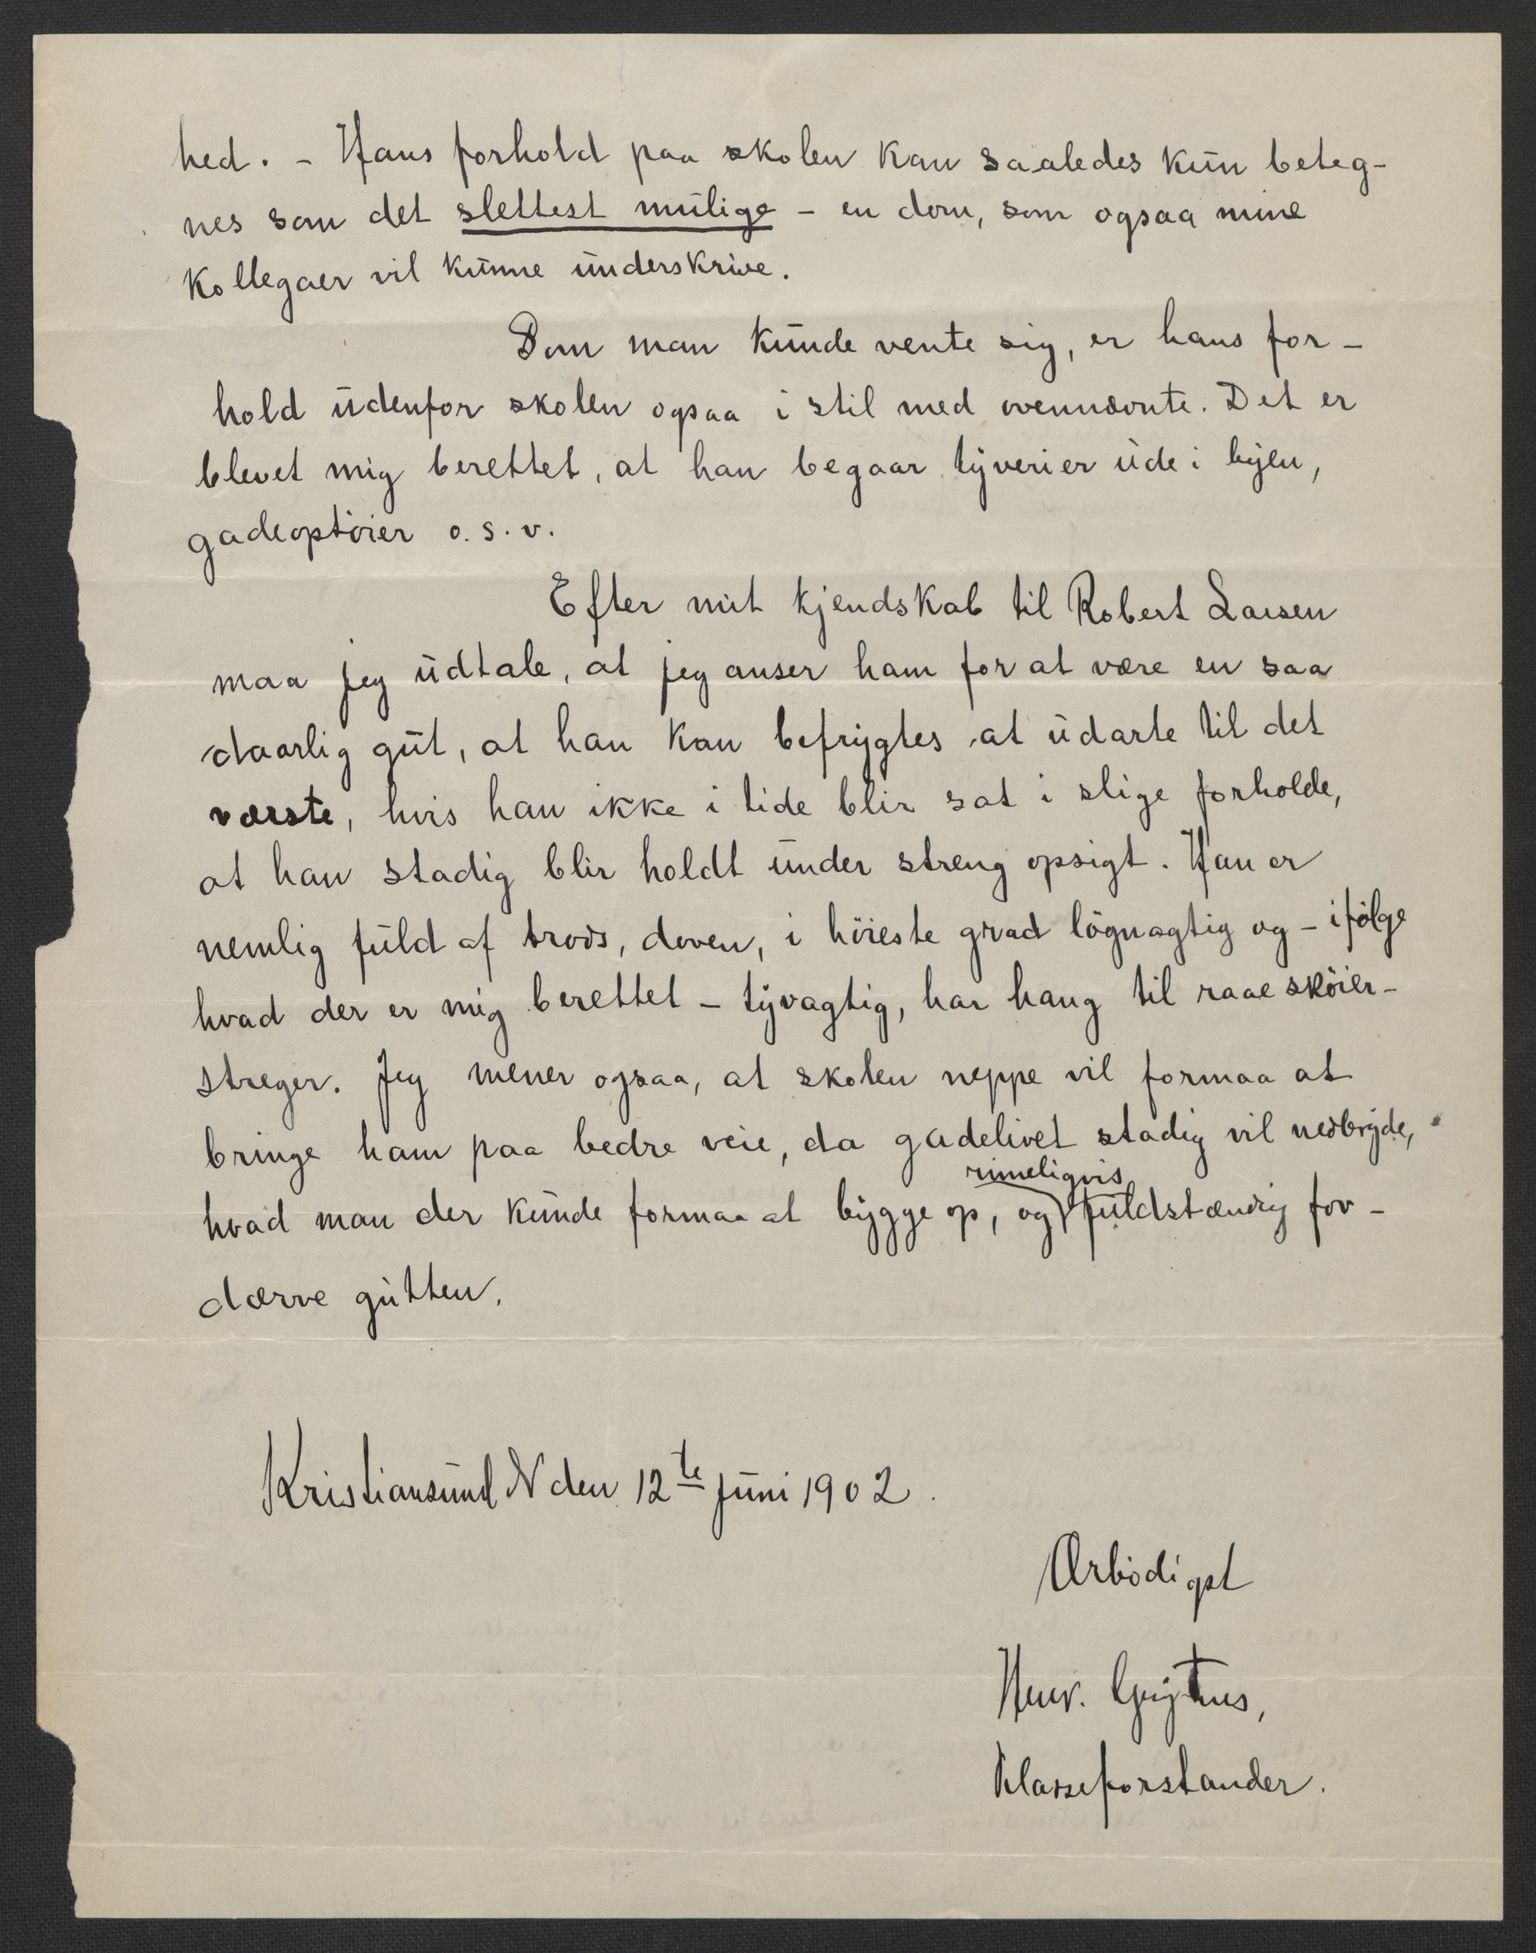 hed. - Hans forhold paa skolen kan saaledes kun beteg-
nes som det slettest mulige - en dom, som ogsaa mine
kollegaer vil kunne underskrive.
Som man kunde vente sig, er hans for-
hold udenfor skolen ogsaa i stil med ovennævnte. Det er
blevet mig berettet, at han begaar tyverier ude i byen,
gadeoptöier o.s.v.
Efter mit kjendskab til Robert Larsen
maa jeg udtale, at jeg anser ham for at være en saa
daarlig gut, at han kan befrygtes at udarte til det
værste, hvis han ikke i tide blir sat i slige forholde,
at han stadig blir holdt under streng opsigt. Han er
nemlig fuld af trods, doven, i höieste grad lögnagtig og - ifölge
hvad der er mig berettet - tyvagtig, har hang til raae sköier-
streger. Jeg mener ogsaa, at skolen neppe vil formaa at
bringe ham paa bedre veie, da gadelivet stadig vil nedbryde,
rimeligvis
hvad man der kunde formaa at bygge op, og fuldstændig for-
dærve gutten.
Kristiansund N den 12te juni 1902.
Ærbödigst
Henr.
Klasseforstander.